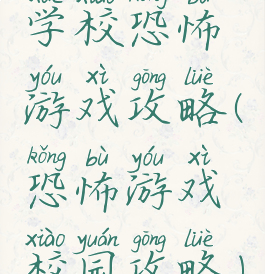 xué xiào kǒng bù
学校恐怖
yóu xì gōng lüè
游戏攻略(
kǒng bù yóu xì
恐怖游戏
xiào yuán gōng lüè
校园攻略)